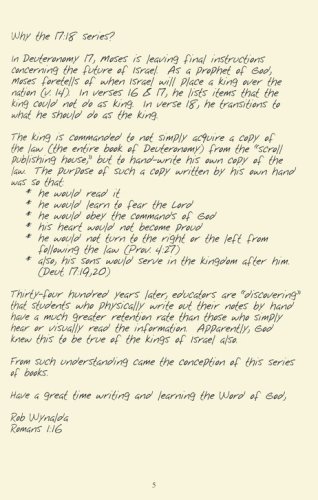 Why the 17:18 series?
In Deuteronomy 17, Moses is leaving final instructions
concerning the future of Israel. As a prophet of God,
Moses foretells of when Israel will place a king over the
nation (v. 14). In verses 16 & 17, he lists items that the
king could not do as king. In verse 18, he transitions to
what he should do as the king.
The king is commanded to not simply acquire a copy of
the law (the entire book of Deuteronomy) from the "scroll
publishing house," but to hand-write his own copy of the
law. The purpose of such a copy written by his own hand
was so that
* he would read it
* he would learn to fear the Lord
* he would obey the commands of God
* his heart would not become proud
* he would not turn to the right or the left from
following the law (Prov. 4:27)
* also, his sons would serve in the kingdom after him.
(Deut. 17:19,20)
Thirty-four hundred years later, educators are "discovering"
that students who physically write out their notes by hand
have a much greater retention rate than those who simply
hear or visually read the information. Apparently, God
knew this to be true of the kings of Israel also.
From such understanding came the conception of this series
of books.
Have a great time writing and learning the Word of God,
Rob Wynalda
Romans 1:16
5